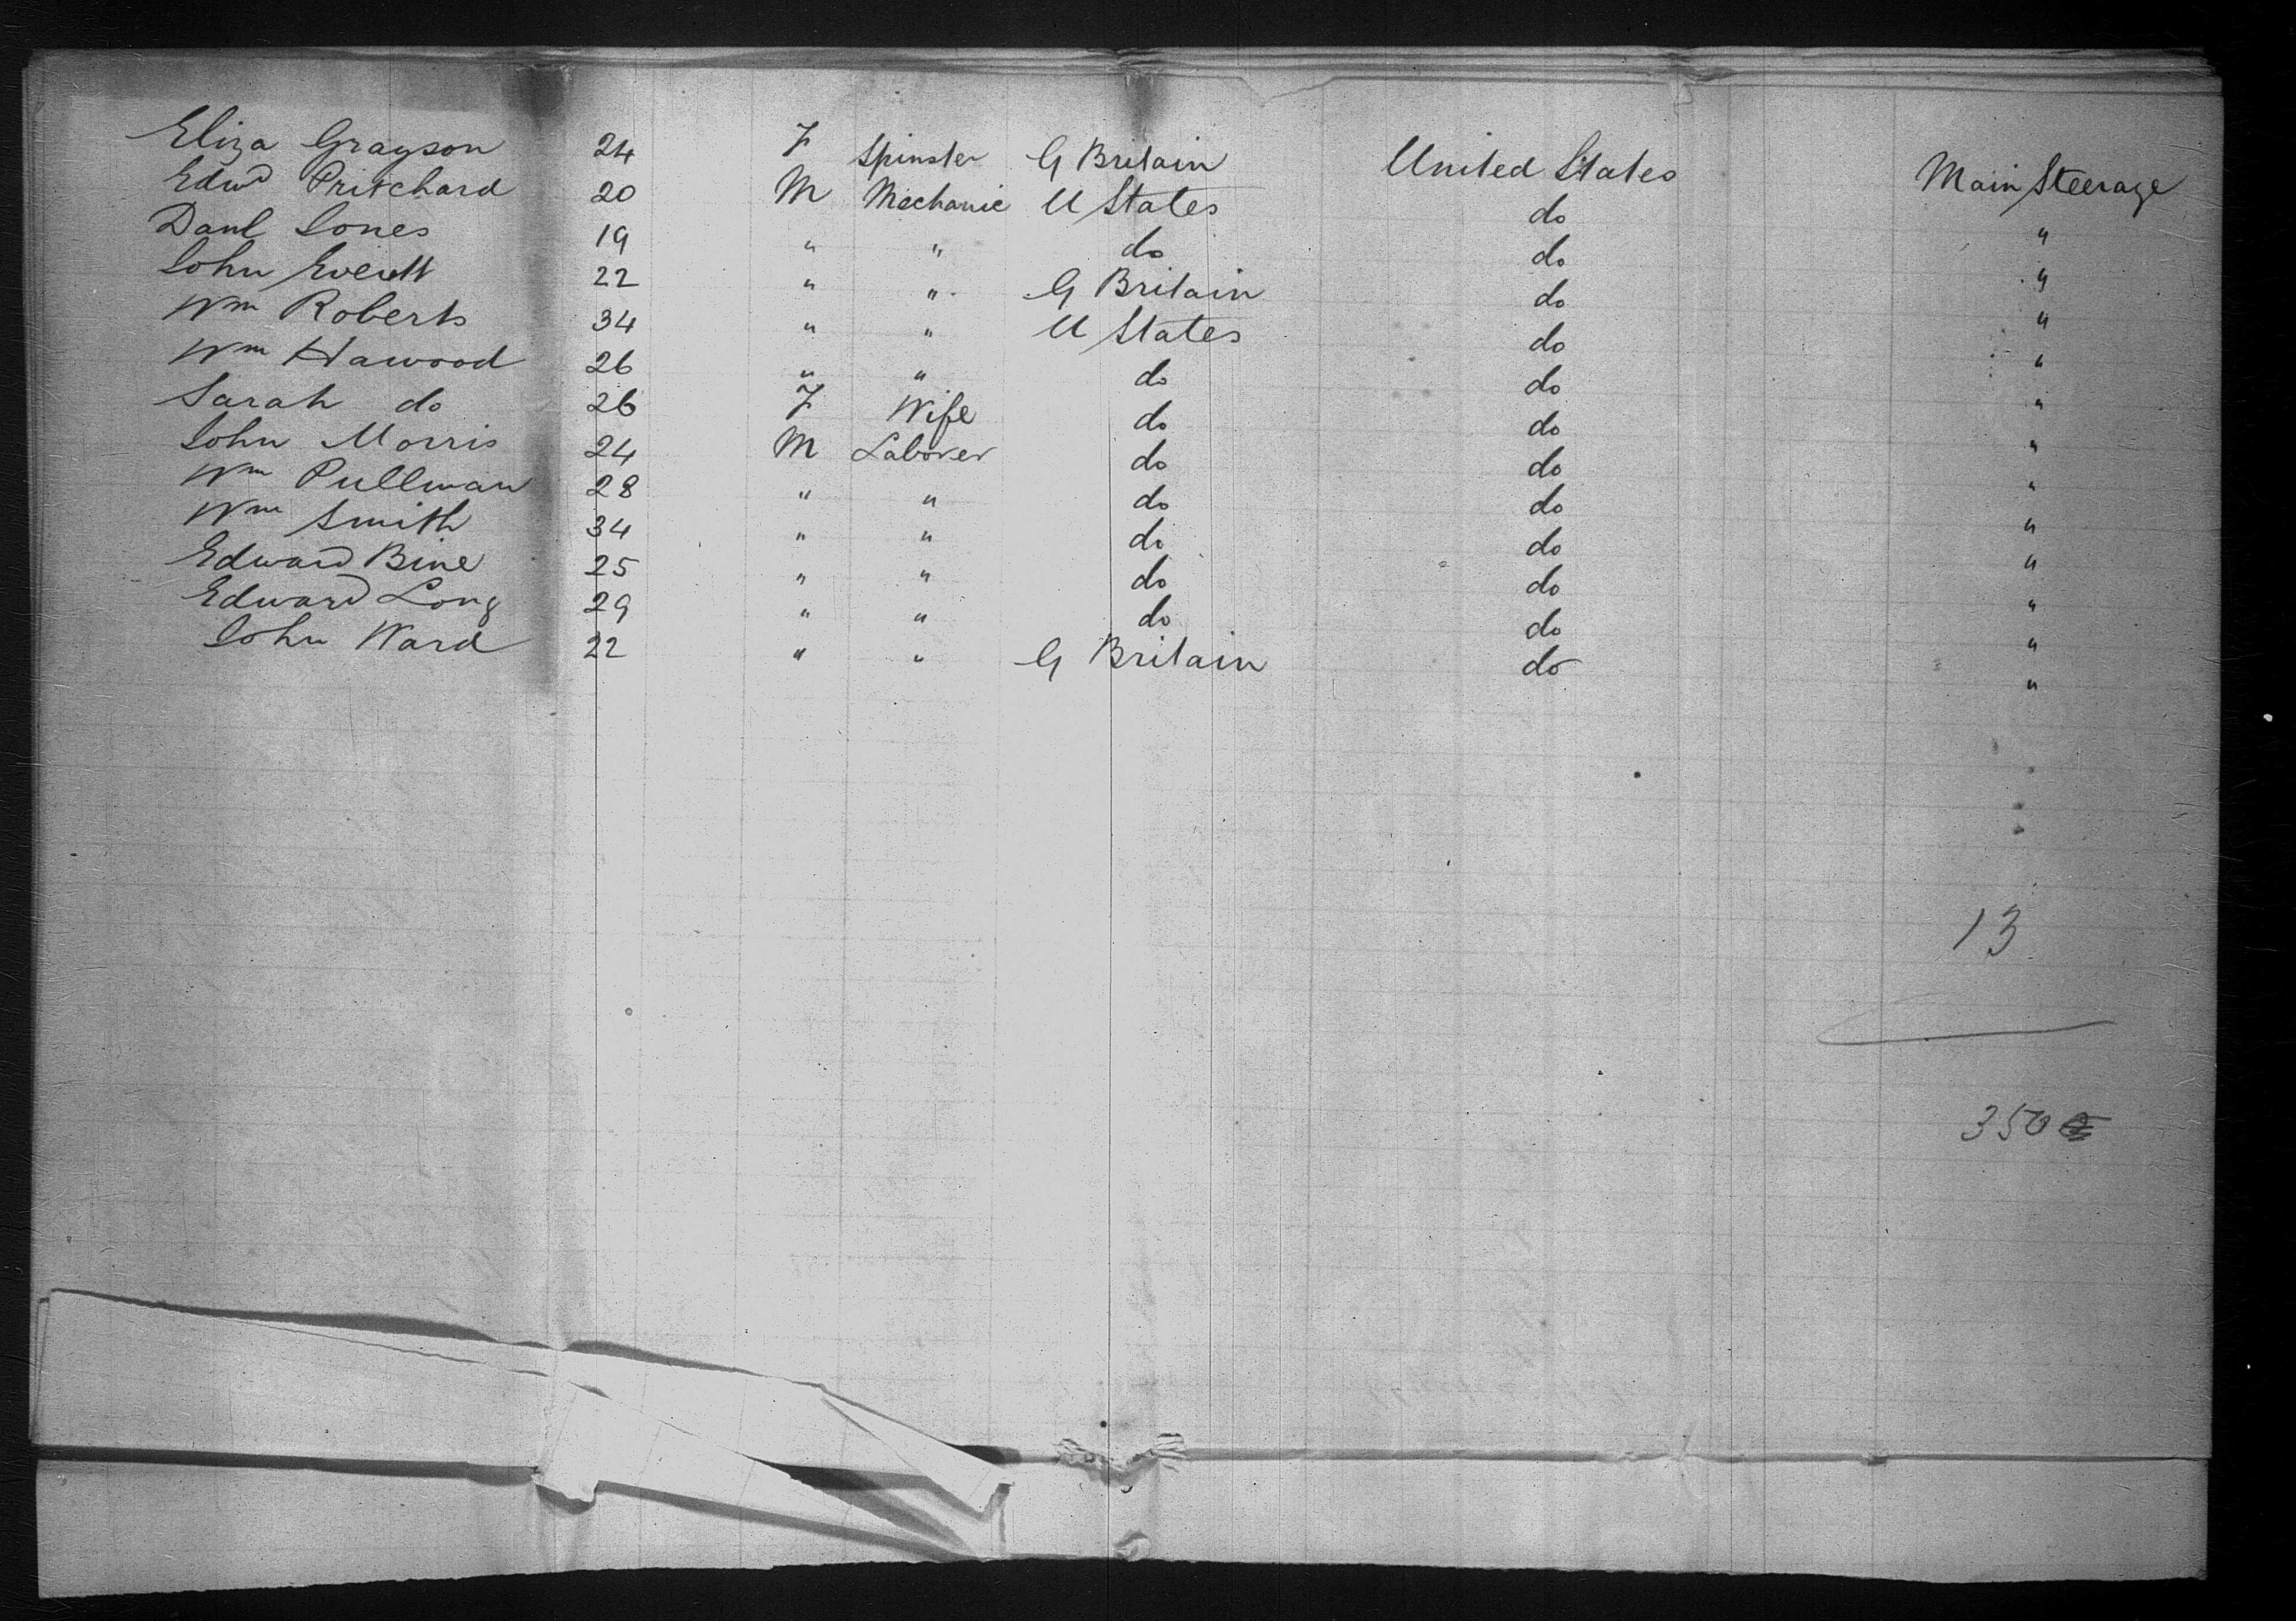 Eliza Grayson 24 F Spinster G Britain United States Main Steerage
Edwd Pritchard 20 M Mechanic U States do "
Danl Jones 19 " " do do "
John Everett 22 " " G Britain do "
Wm Roberts 34 " " U States do "
Wm Hawood 26 " " do do "
Sarah do 26 F Wife do do "
John Morris 24 M Laborer do do "
Wm Pullman 28 " " do do "
Wm Smith 34 " " do do "
Edward Bine 25 " " do do "
Edward Long 29 " " do do "
John Ward 22 " " G Britain do "
13
350